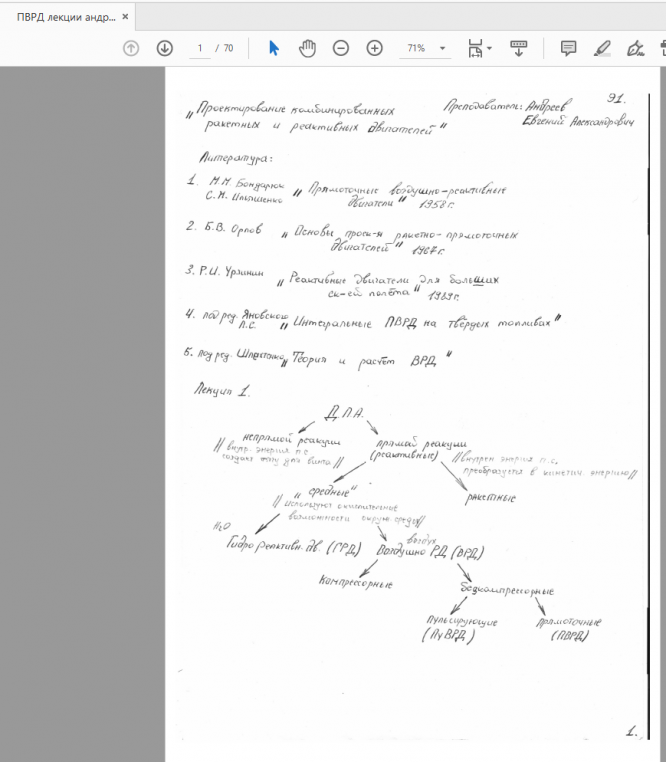 ПВРД лекции андр...
1 / 70
71%
91.
"Проектирование комбинированных
ракетных и реактивных двигателей"
Преподаватель: Андреев
Евгений Александрович
Литература:
1. М.М. Бондарюк
С.М. Ильяшенко
"Прямоточные воздушно-реактивные
двигатели" 1958г.
2. Б.В. Орлов "Основы проек-я ракетно-прямоточных
двигателей" 1967г.
3. Р.И. "Реактивные двигатели для больших
ск-ей полёта" 1989г.
4. под ред. Яновского
Л.С. "Интегральные ПВРД на твёрдых топливах"
5. под ред. "Теория и расчёт ВРД"
Лекция 1.
Д.Л.А.
непрямой реакции
//внутр. энергия п.с
создаёт тягу для винта//
прямой реакции
(реактивные)
//внутрен энергия п.с,
преобразуется в кинетич. энергию//
"средные"
//используют окислительные
возможности окруж. среды//
ракетные
H₂O
Гидро реактивн. дв. (ГРД)
воздух
Воздушно РД (ВРД)
Компрессорные
Бескомпрессорные
Пульсирующие
(ПуВРД)
Прямоточные
(ПВРД)
1.